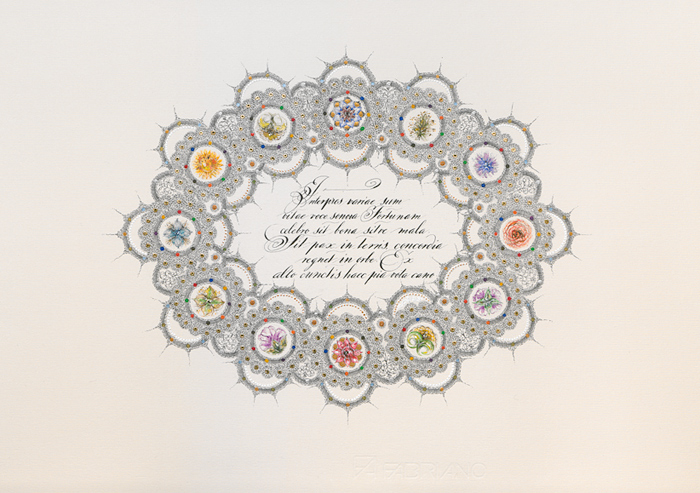 Interpres variae sum
vitae voce sonora Fortunam
celebro sit bona sitve mala
Sit pax in terris concordia
regnet in orbe Ex
alto cunctis haec pia vota cano
FABRIANO